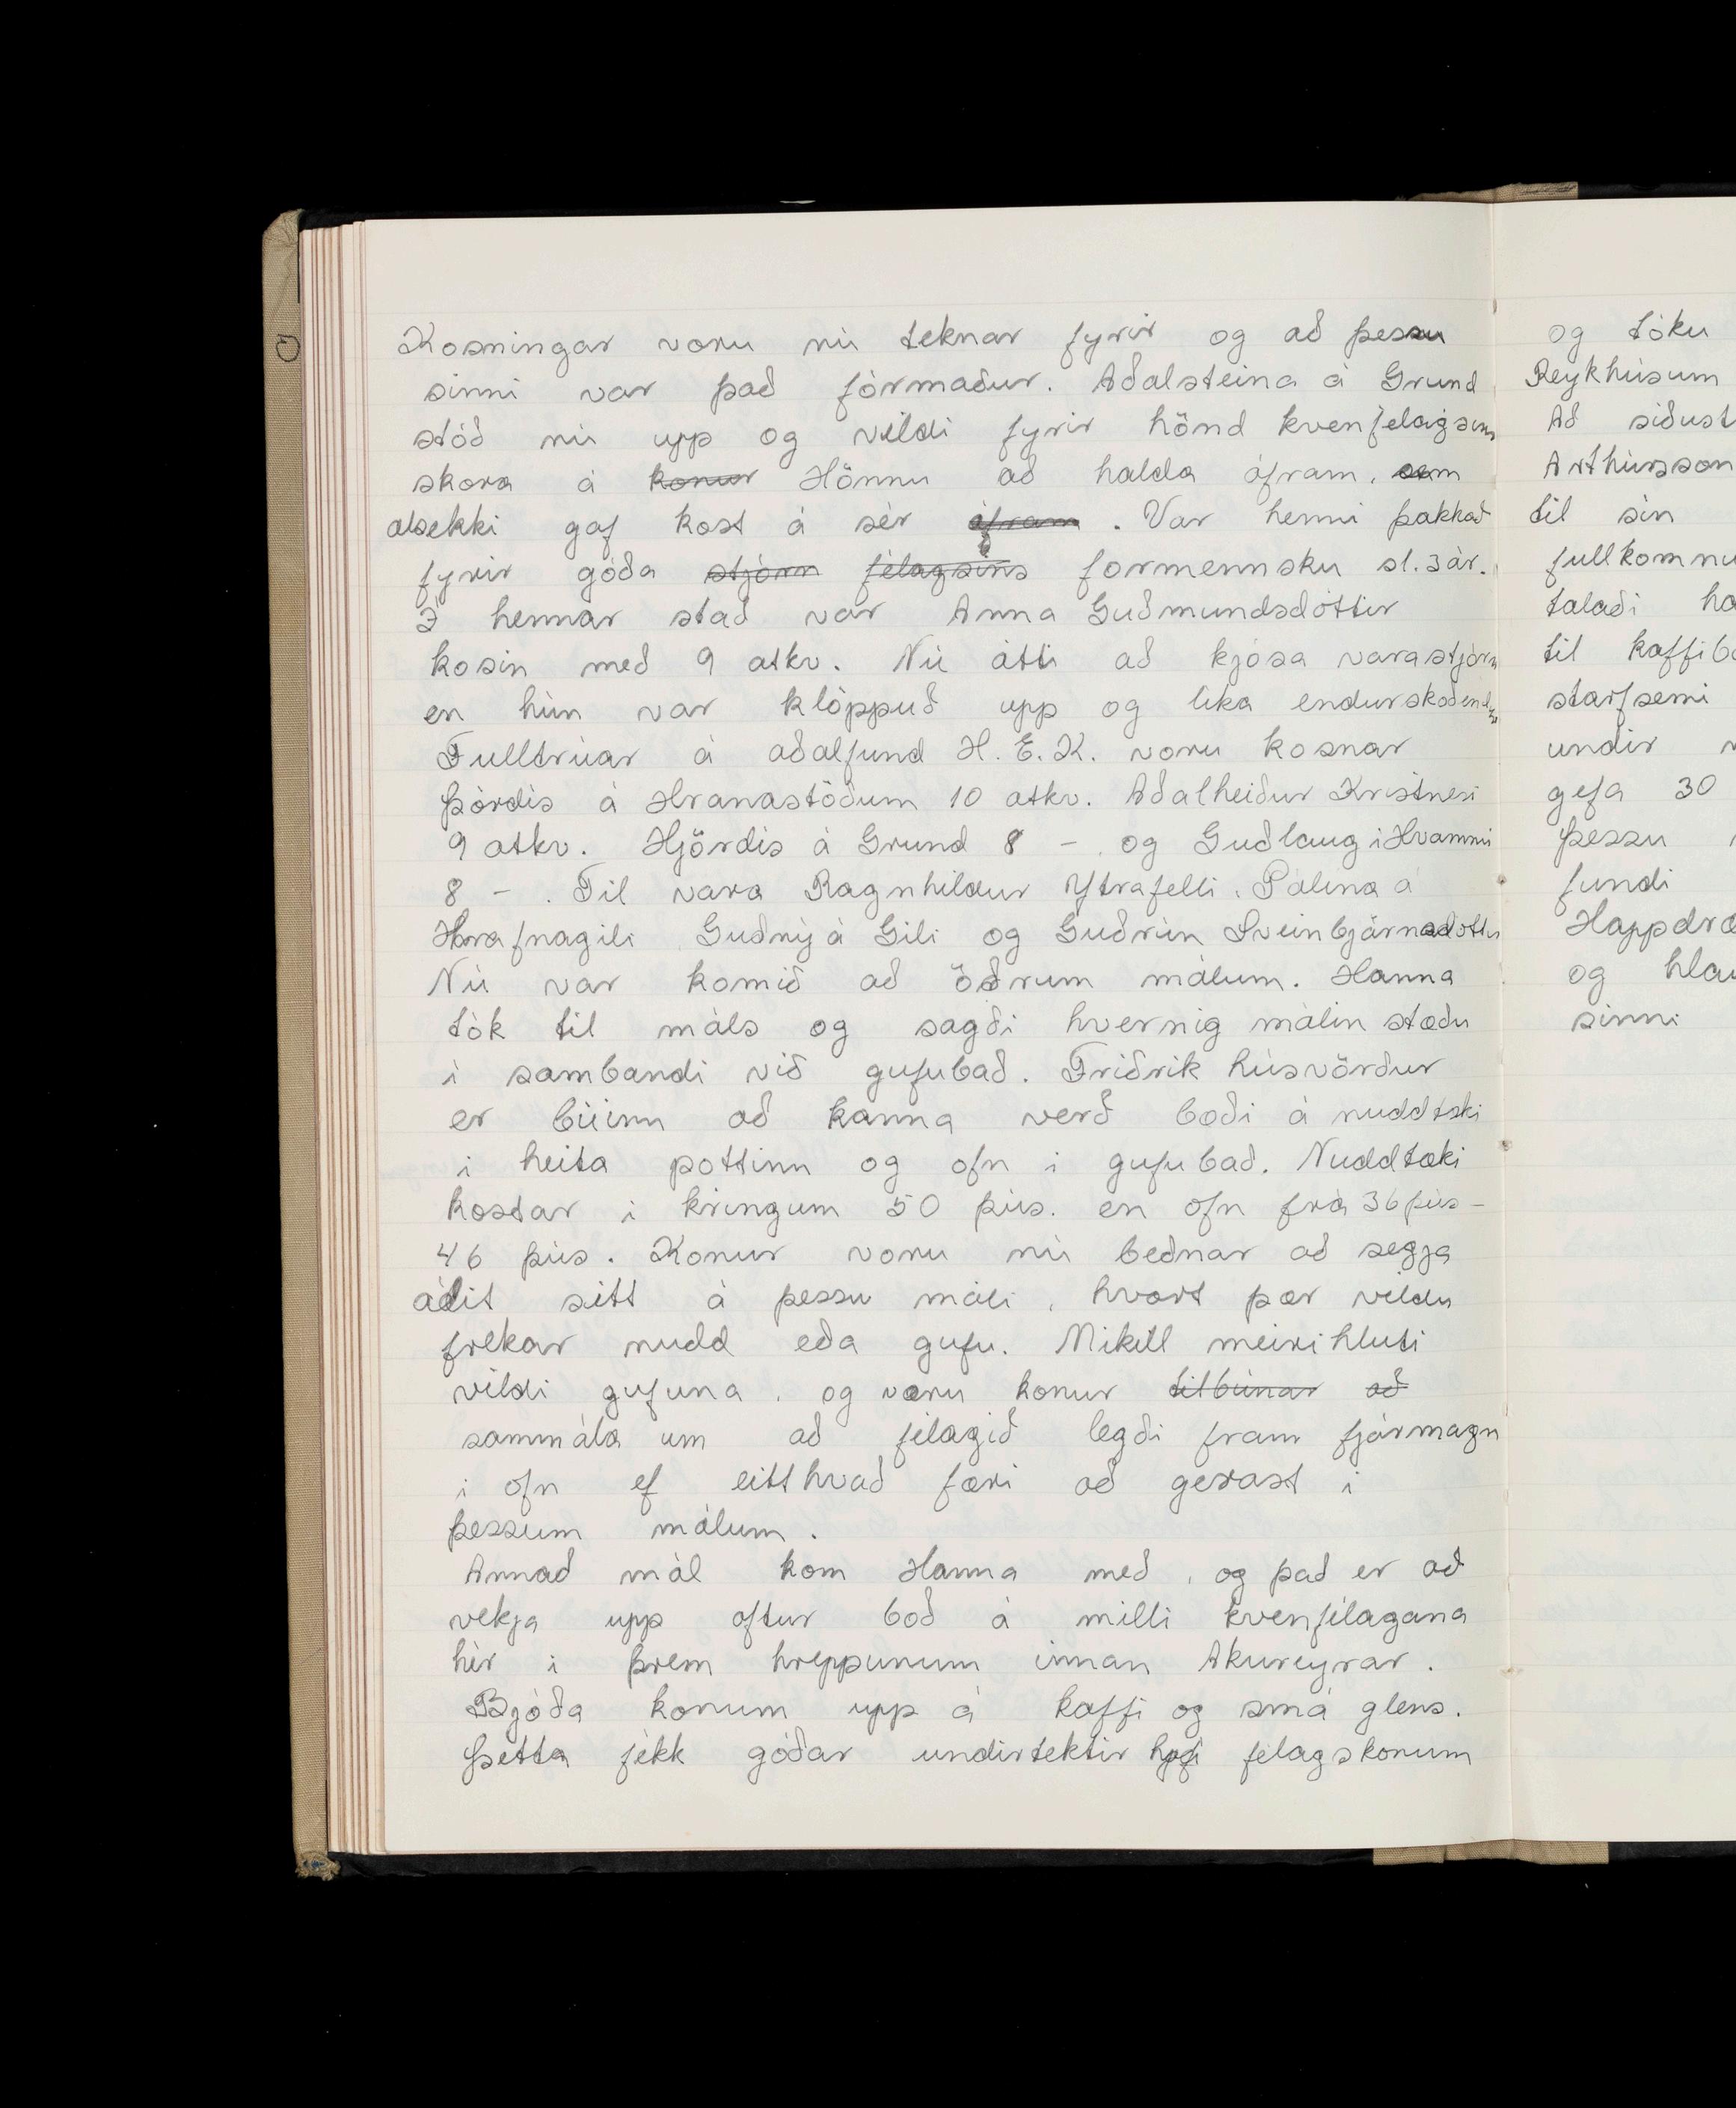 Kosningar voru nú teknar fyrir og að þessu
sinni var það formaður. Aðalsteina á Grund
stóð nú upp og vildi fyrir hönd kvenfelagsins
skora á konur Hönnu að halda áfram, sem
alsekki gaf kost á sér áfram. Var henni þakkað
fyrir góða stjórn félagsins formennsku sl. 3 ár.
Í hennar stað var Anna Guðmundsdóttir
kosin með 9 atkv. Nú átti að kjósa varastjórn
en hún var klöppuð upp og lika endurskoðendur
Fulltrúar á aðalfund H.E.K. voru kosnar
Þórdís á Hranastöðum 10 atkv. Aðalheiður Kristnesi
9 atkv. Hjördís á Grund 8 - og Guðlaug í Hvammi
8 - . Til vara Ragnhildur Ytrafelli, Pálína á
Hrafnagili Guðný á Gili og Guðrún Sveinbjörnsdóttir
Nú var komið að öðrum málum. Hanna
tók til máls og sagði hvernig málin stæðu
í sambandi við gufubað. Friðrik húsvörður
er búinn að kanna verð bæði á nuddtæki
í heita pottinn og ofn í gufubað. Nuddtæki
kostar í kringum 50 þús. en ofn frá 36 þús -
46 þús. Konur voru nú beðnar að segja
álit sitt á þessu máli, hvort þær vildu
frekar nudd eða gufu. Mikill meirihluti
vildi gufuna, og voru konur tilbúnar að
sammála um að félagið legði fram fjármagn
í ofn ef eitthvað færi að gerast í
þessum málum.
Annað mál kom Hanna með, og það er að
vekja upp aftur boð á milli kvenfélagana
hér í þrem hreppunum innan Akureyrar.
Bjóða konum upp á kaffi og smá glens.
Þetta fékk góðar undirtektir hjá félagskonum
og tóku
Reykhúsum
Að síðust
Arthúrsson
til sín
fullkomnu
talaði ha
til kaffibo
starfsemi
undir
gefa 30
þessu
fundi
Happdræ
og hlau
sinni